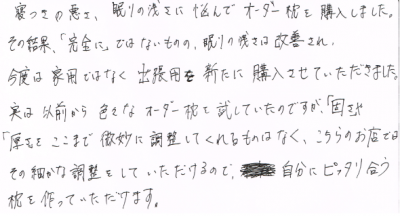 寝つきの悪さ、眠りの浅さに悩んでオーダー枕を購入しました。
その結果、「完全に」ではないものの、眠りの浅さは改善され、
今度は家用ではなく出張用を新たに購入させていただきました。
実は以前から色々なオーダー枕を試していたのですが、「固さや
「厚さをここまで微妙に調整してくれるものはなく、こちらのお店では
その細かな調整をしていただけるので、自分にピッタリ合う
枕を作っていただけます。